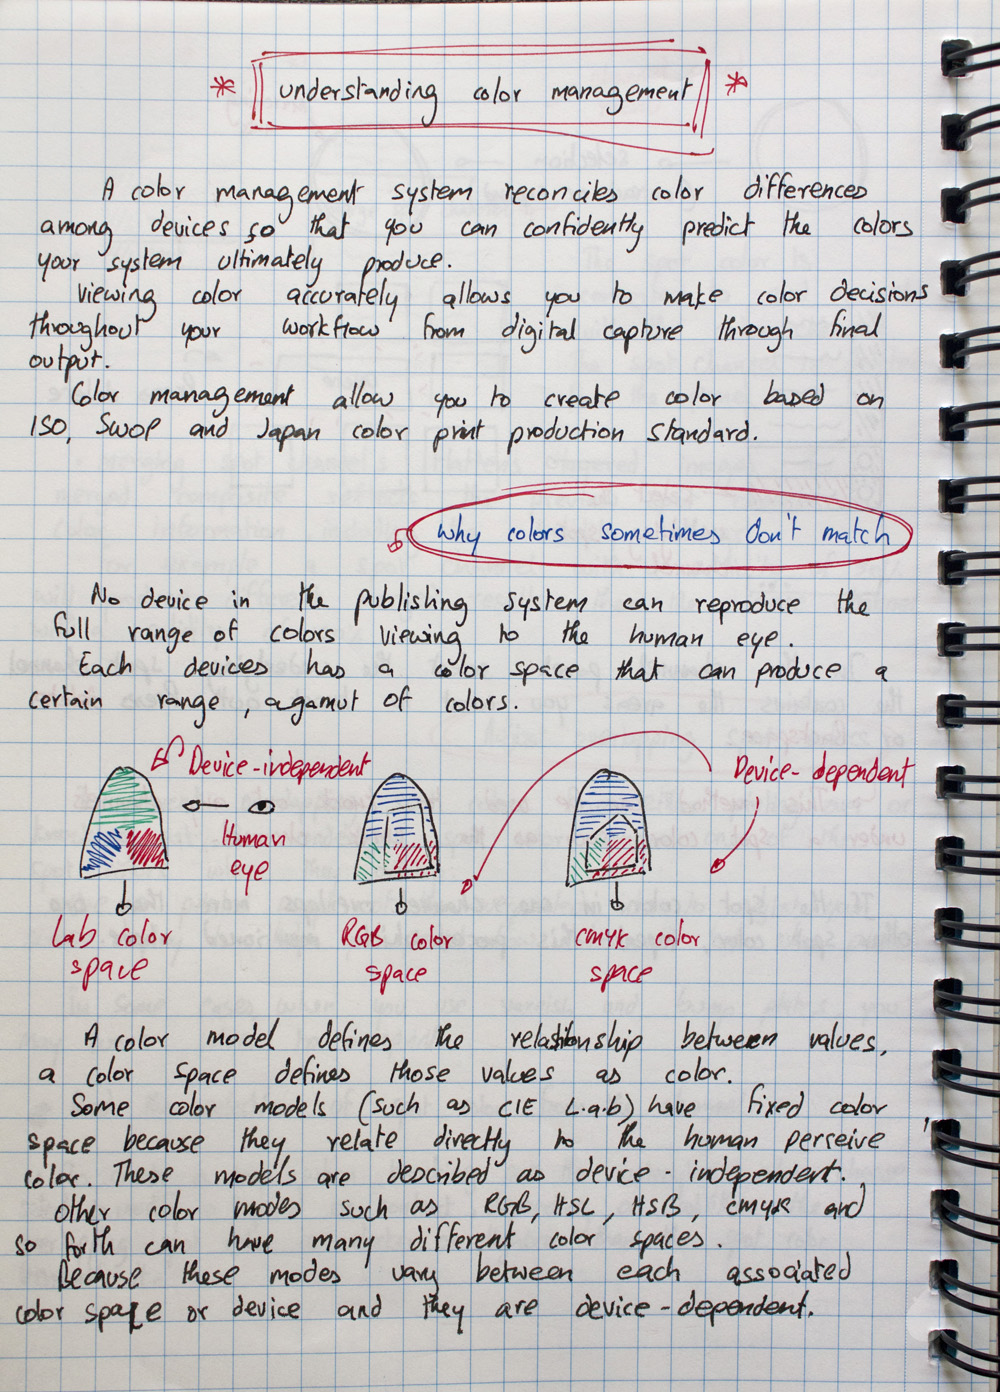 * understanding color management *
A color management system reconciles color differences
among devices so that you can confidently predict the colors
your system ultimately produce.
Viewing color accurately allows you to make color decisions
throughout your workflow from digital capture through final
output.
Color management allow you to create color based on
ISO, SWOP and Japan color print production standard.
why colors sometimes don't match
No device in the publishing system can reproduce the
full range of colors viewing to the human eye.
Each devices has a color space that can produce a
certain range, a gamut of colors.
Device-independent
Human
eye
Device-dependent
Lab color
space
RGB color
space
CMYK color
space
A color model defines the relationship between values,
a color space defines those values as color.
Some color models (such as CIE L.a.b) have fixed color
space because they relate directly to the human perseive
color. These models are described as device-independent.
Other color modes such as RGB, HSL, HSB, CMYK and
so forth can have many different color spaces.
Because these modes vary between each associated
color space or device and they are device-dependent.